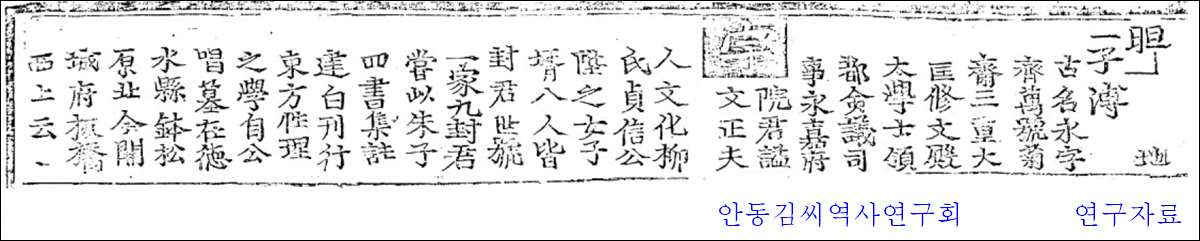 㫜
地
一子溥
古名永字
齊萬號菊
齋三重大
匡修文殿
太學士領
都僉議司
事永嘉府
院君諡
文正夫
人文化柳
氏貞信公
陞之女子
壻八人皆
封君世號
一家九封君
嘗以朱子
四書集註
建白刊行
東方性理
之學自公
唱墓在德
水縣鉢松
原北今開
城府板橋
西上云
안동김씨역사연구회 연구자료